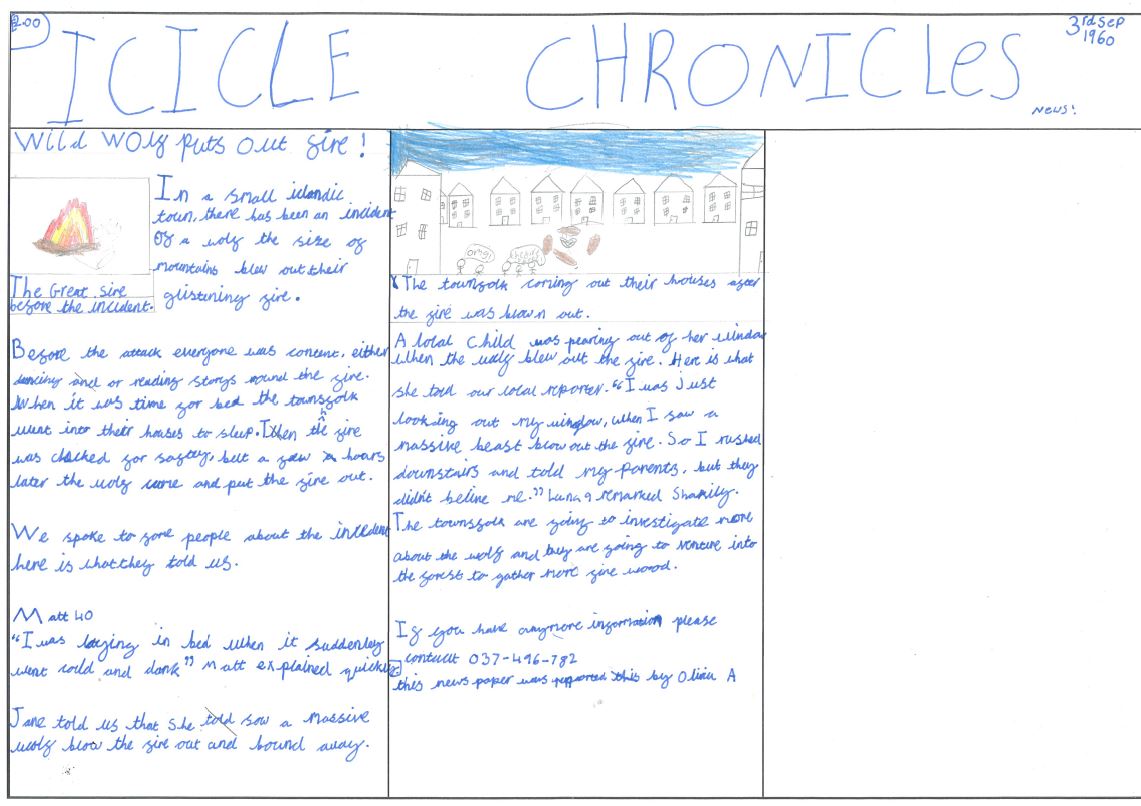 £2.00
ICICLE CHRONICLES
3rd Sep
1960
News!
Wild Wolf puts out fire!
In a small islandic
town, there has been an incident
of a wolf the size of
mountains blew out their
glistening fire.
The Great fire
before the incident.
Before the attack everyone was content, either
dancing and or reading storys round the fire.
When it was time for bed the townsfolk
went into their houses to sleep. Then the fire
was checked for saftey, but a few hours
later the wolf came and put the fire out.
We spoke to some people about the incident
here is what they told us.
Matt 40
"I was laying in bed when it suddenley
went cold and dark" Matt explained quickly.
Jane told us that she told saw a massive
wolf blow the fire out and bound away.
OMG!
The townsfolk coming out their houses after
the fire was blown out.
A local child was pearing out of her window
when the wolf blew out the fire. Here is what
she told our local reporter. "I was just
looking out my window, when I saw a
massive beast blow out the fire. So I rushed
downstairs and told my parents, but they
didn't belive me." Luna 9 remarked
The townsfolk are going to investigate more
about the wolf and they are going to venture into
the forest to gather more fire wood.
If you have anymore information please
contact 037-496-782
this news paper was reported this by Olivia A